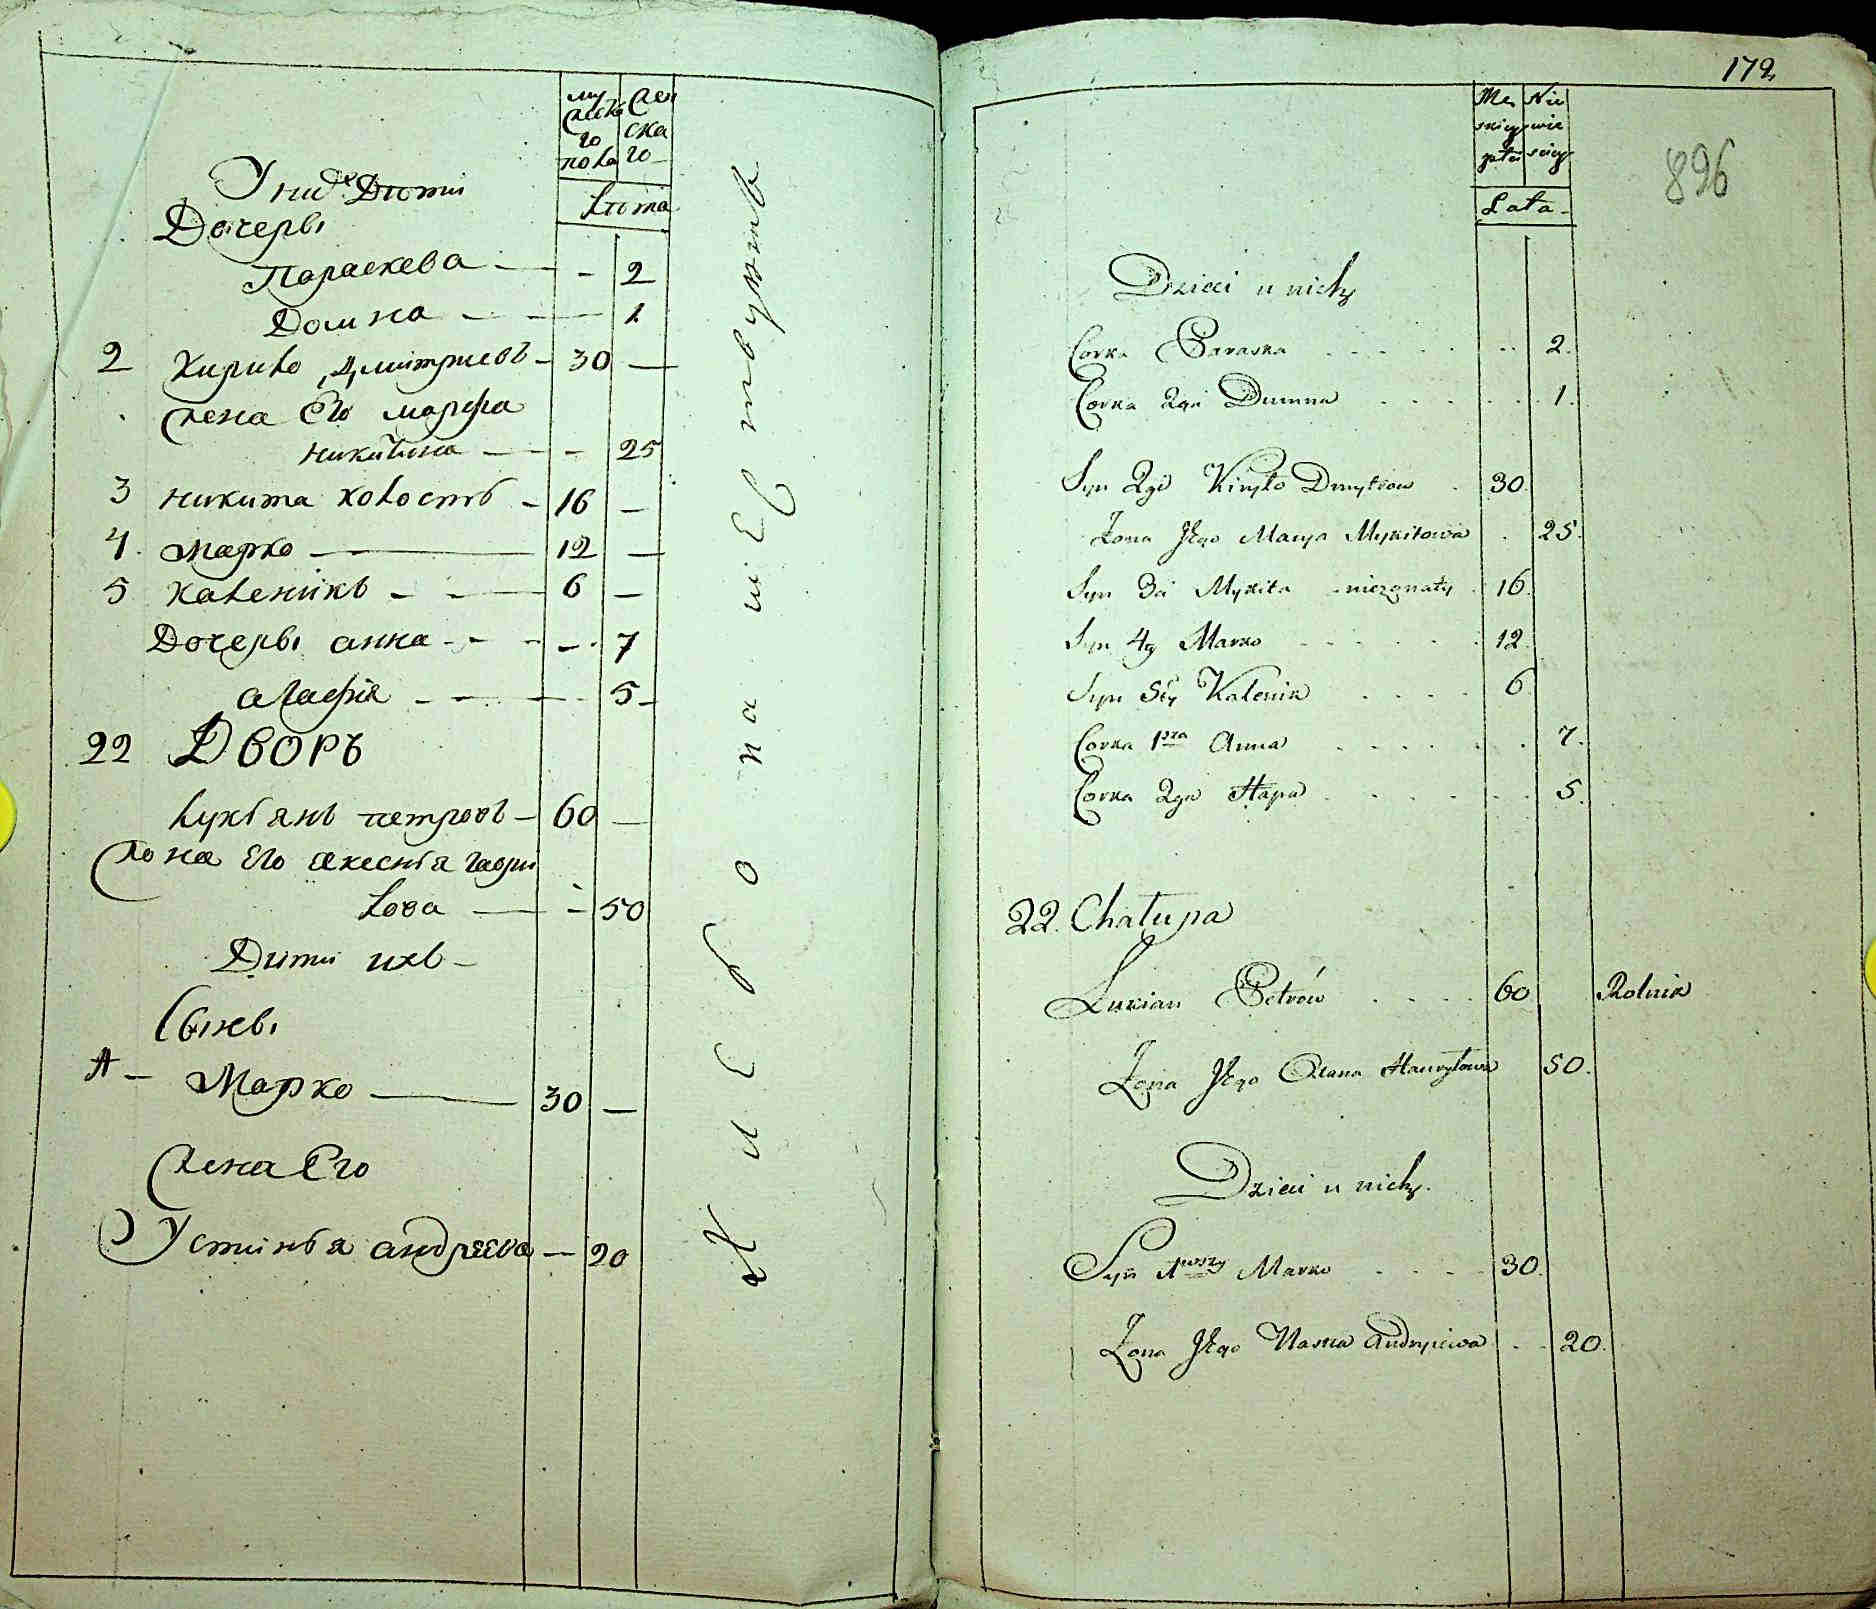 муского пола | женскаго
Лѣта
У них Дѣти
Дочеры
Параскева — - 2
Домна — 1
2 Кирило Дмитриевъ - 30 —
жена Его марфа
никитина — - 25
3 никита холостъ - 16 —
4. марко — 12 —
5 каленикъ - - 6 —
Дочеры анна - - - 7
агафія - - 5 -
22 Дворъ
лукьянъ петровъ - 60 —
жона Его аксенья гаври
лова — - 50
Дити ихъ -
Сыны
А - Марко — 30 —
жена Его
Устинья андреева — 20
Хлебопашествуютъ
172
896
Męskiey płci | Niewieściey
Lata -
Dzieci u nich
Corka Paraska . . . . . 2.
Corka 2ga Dumna . . . . . 1.
Syn 2gi Kiryło Dmytrow . 30.
Żona Jego Marya Mykitowa . 25.
Syn 3ci Mykita - nieżonaty . 16.
Syn 4y Marko . . . . . 12.
Syn 5ty Kalenik . . . . 6.
Corka 1sza Anna . . . . . 7.
Corka 2ga Hapa . . . . . 5.
22. Chałupa
Lukian Petrów . . . . 60 Rolnik
Żona Jego Oxana Hawryłowa 50.
Dzieci u nich.
Syn 1wszy Marko . . . . 30.
Żona Jego Uaska Andryiewa . . 20.